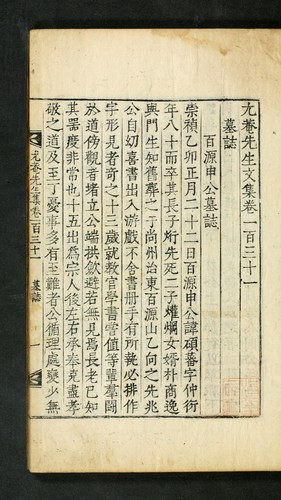 尤菴先生文集卷一百三十一
墓誌
百源申公墓誌
崇禎乙卯正月二十二日百源申公諱碩蕃字仲衍
年八十而卒其長子烆先死二子𤏸爛女婿朴商逸
與門生知舊葬之于尚州治東百源山乙向之先兆
公自幼喜書出入游戱不舍書册子有所執必排作
字形見者奇之十三歲就教官學書嘗值等輩羣鬪
於道傍觀者堵立公端拱歛避若無見焉長老已知
其器度非常也十五出為宗人後左右承奉克盡孝
敬之道及至丁憂事多有至難者公循理處變少無
尤菴先生集卷一百三十一
墓誌
一